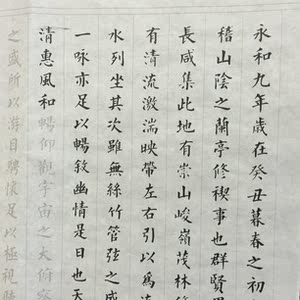 永和九年歲在癸丑暮春之初
稽山陰之蘭亭修禊事也群賢
長咸集此地有崇山峻嶺茂林修
有清流激湍映帶左右引以為流
水列坐其次雖無絲竹管弦之盛
一咏亦足以暢敘幽情是日也天
清惠風和暢仰觀宇宙之大俯察
之盛所以游目騁懷足以極視聽